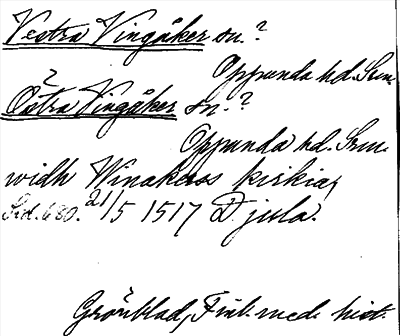 Vestra Vingåker sn.?
Oppunda hd. Srm.
?
Östra Vingåker sn.?
Oppunda hd. Srm.
widh Winakers kirkia,
21/5 1517 D jula.
Grönblad, Finl. med. hist.